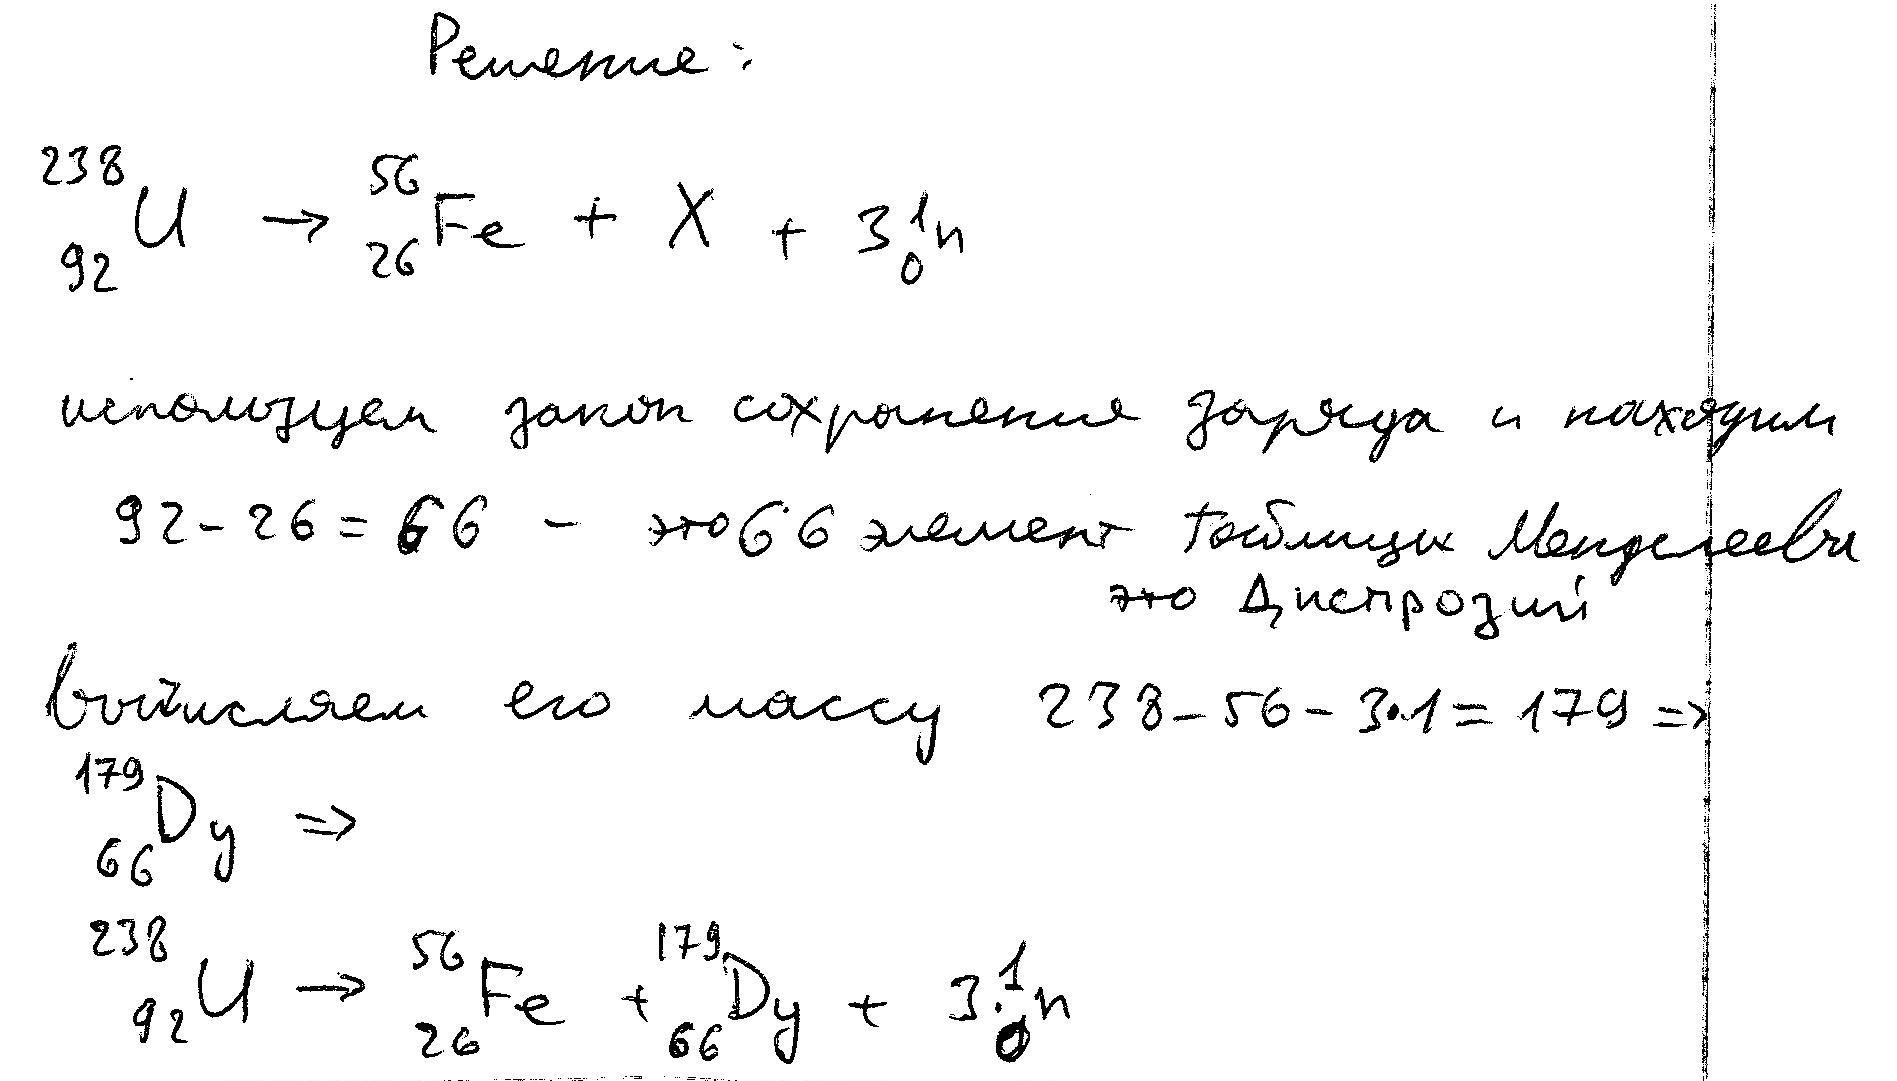 Решение:
²³⁸₉₂U → ⁵⁶₂₆Fe + X + 3¹₀n
используем закон сохранения заряда и находим
92 - 26 = 66 - это 66 элемент таблицы Менделеева
это Диспрозий
вычисляем его массу 238 - 56 - 3·1 = 179 ⇒
¹⁷⁹₆₆Dy ⇒
²³⁸₉₂U → ⁵⁶₂₆Fe + ¹⁷⁹₆₆Dy + 3·¹₀n